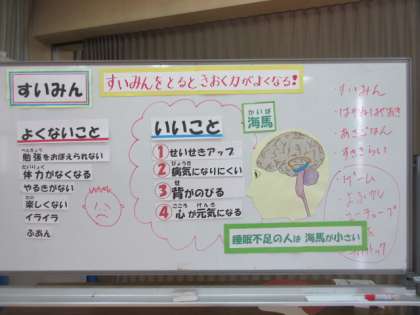 すいみん
すいみんをとるときおく力がよくなる!
よくないこと
べんきょう
勉強をおぼえられない
たいりょく
体力がなくなる
やるきがない
たの
楽しくない
イライラ
ふあん
いいこと
①せいせきアップ
びょうき
②病気になりにくい
せ
③背がのびる
こころ げんき
④心が元気になる
かいば
海馬
睡眠不足の人は 海馬が小さい
・すいみん
・はやねはやおき
・あさごはん
・すききらい
・ゲーム
・よふかし